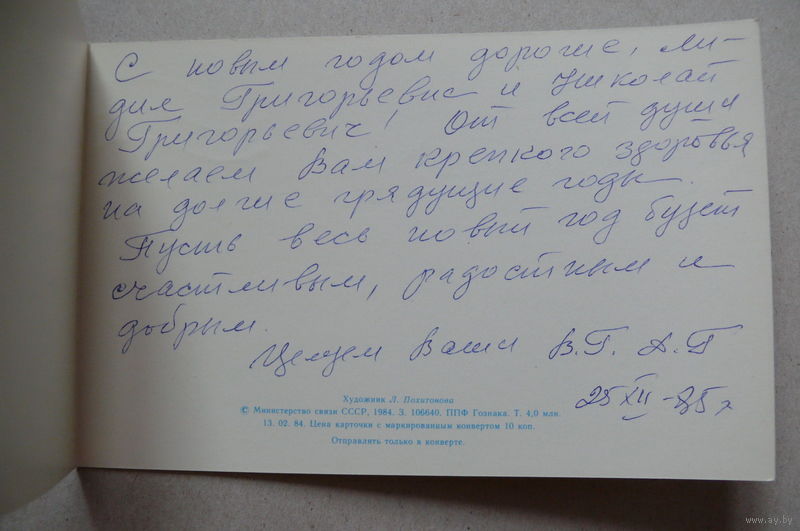 С новым годом дорогие, Ли-
дия Григорьевна и Николай
Григорьевич! От всей души
желаем Вам крепкого здоровья
на долгие грядущие годы.
Пусть весь новый год будет
счастливым, радостным и
добрым.
Целуем Ваши В.Г. А.Г
25 XII -85 г
Художник Л. Похитонова
© Министерство связи СССР, 1984. З. 106640. ППФ Гознака. Т. 4,0 млн.
13. 02. 84. Цена карточки с маркированным конвертом 10 коп.
Отправлять только в конверте.
www.ay.by